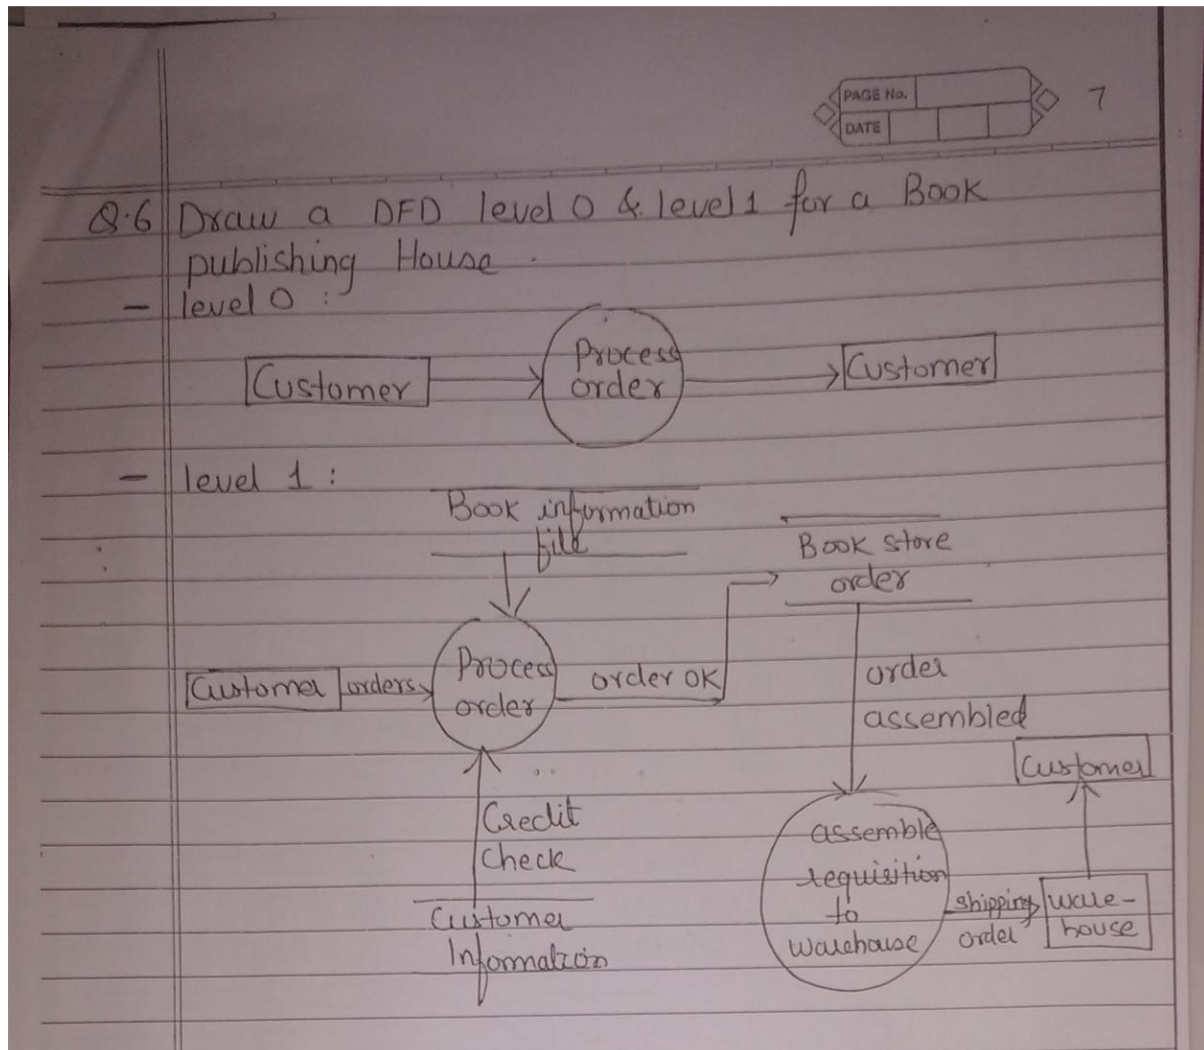 PAGE No.
DATE
7
Q.6 Draw a DFD level 0 & level 1 for a Book
publishing House.
- level 0 :
Customer
Process
order
Customer
- level 1 :
Book information
file
Book store
order
Customer
orders
Process
order
order OK
order
assembled
Customer
Credit
check
assemble
requisition
to
warehouse
shipping
order
ware-
house
Customer
Information